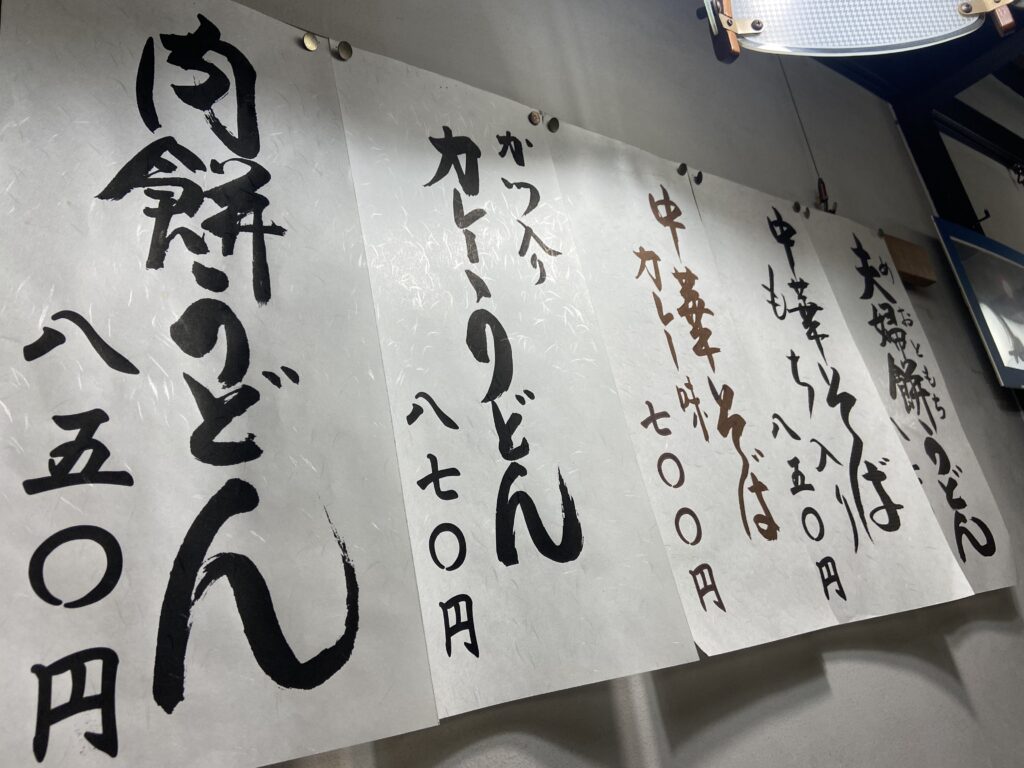 めおともち
夫婦餅うどん
中華そば
もち入り
八五〇円
中華そば
カレー味
七〇〇円
かつ入り
カレーうどん
八七〇円
肉餅うどん
八五〇円